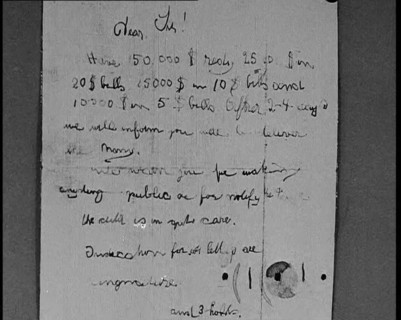 Dear Sir!
Have 50,000 $ redy 25 0 $ in
20 $ bills 15000 $ in 10 $ bills and
10000 $ in 5 $ bills After 2-4 days
we will inform you were to deliver
the Mony.
We warn you for making
anyding public or for notify the
the child is in gute care.
Indication for all letters are
singnature
and 3 holds.